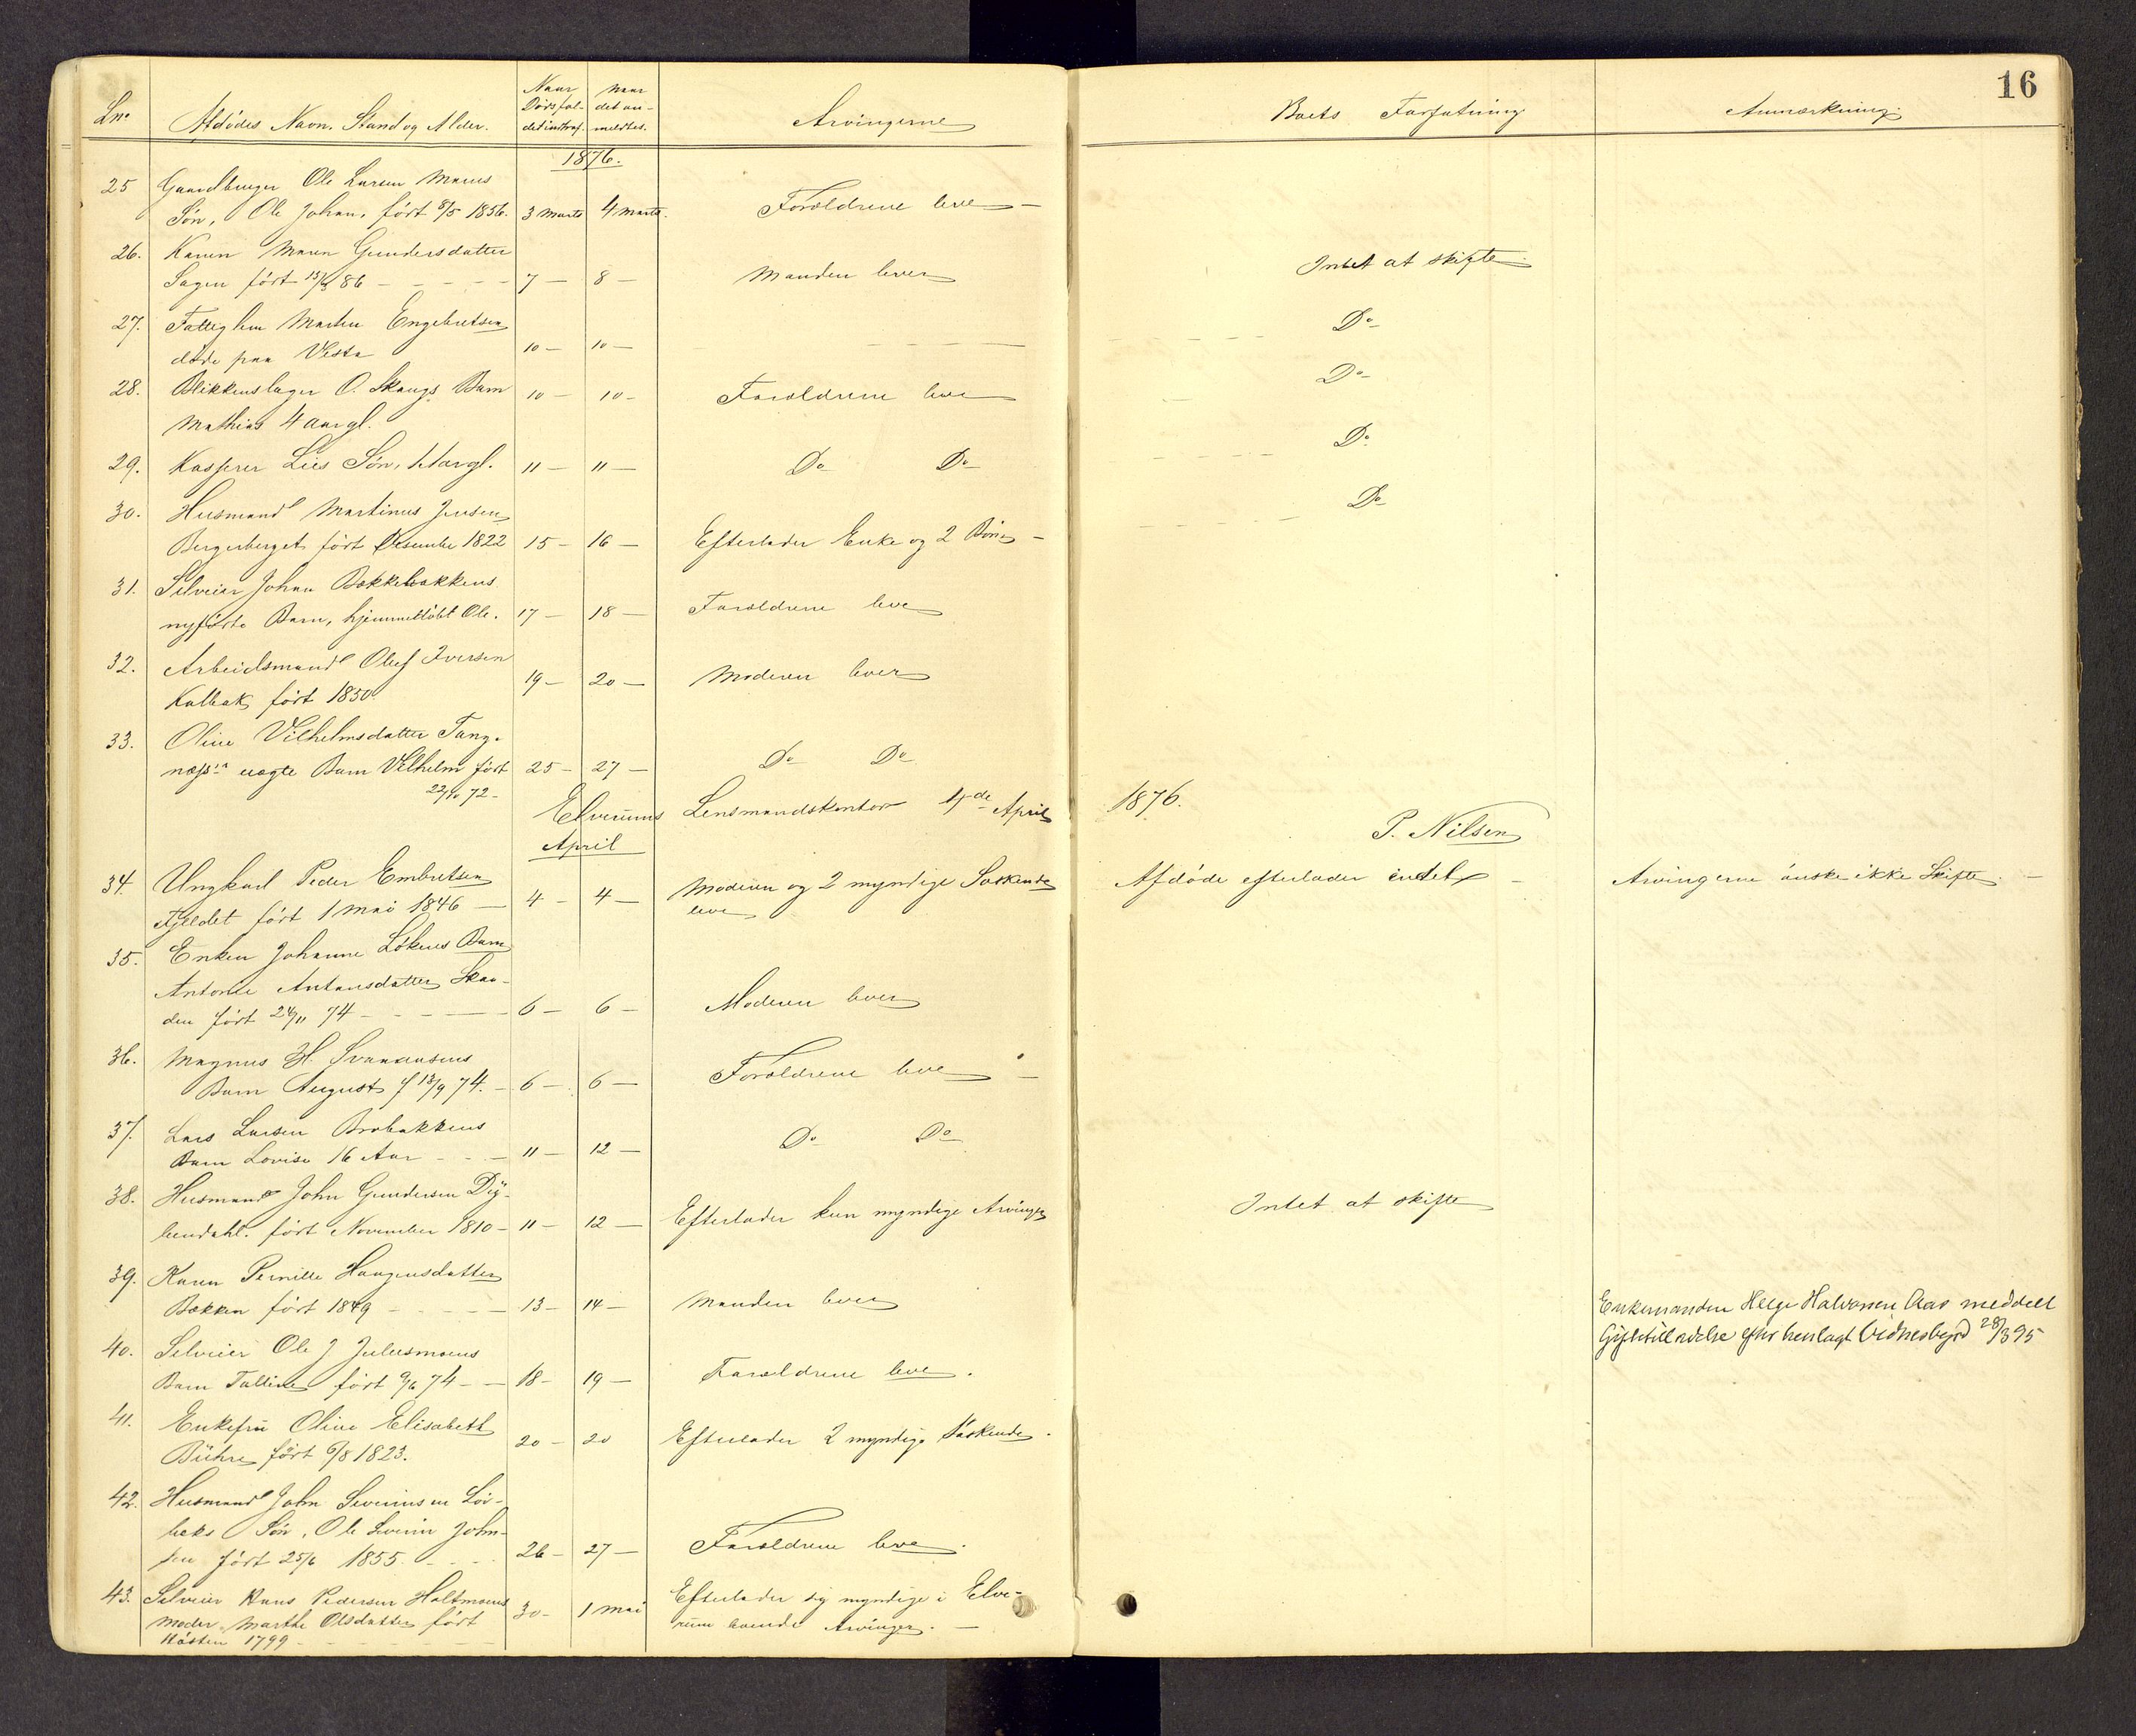 16
Lno
Afdödes Navn, Stand og Alder.
Naar Dödsfal- det indtraf.
Naar det an- meldtes.
Arvingerne
Boets Forfatning
Anmærkning
1876.
25 Gaardbruger Ole Larsen
Søn, Ole Johan, født 8/5 1856. 3 Marts 4 Marts. Forældrene leve —
26. Karen Maren Gundersdatter
født 13/3 86 — 7 — 8 — Manden lever Intet at skifte
27. Fattiglem Martin Engebretsen Do
døde paa Vesta 10 — 10 —
28. Blikkenslager O. Skaugs Barn 10 — 10 — Forældrene leve Do
Mathias 4 aar gl.
29. Kasper Lies Søn, 11 — 11 — Do Do Do
30. Husmand Martinus Jensen Do
Bergerberget født Desember 1822 15 — 16 — Efterlader Enke og 2 Börn —
31. Selveier Johan Bækkebakkens
nyfødte Barn, hjemmedöbt Ole. 17 — 18 — Forældrene leve
32. Arbeidsmand Oluf Iversen
Kalbak født 1850 19 — 20 — Moderen lever
33. Oline Vilhelmsdatter Tang-
næss uægte Barn Vilhelm født 25 — 27 — Do Do
22/10 72 —
Elverums Lensmandskontor 4de April 1876.
P. Nilsen
April
34. Ungkarl Peder Embretsen
Fjeldet født 1 Mai 1846 — 4 — 4 — Moderen og 2 myndige Søskende leve Afdöde efterlader intet — Arvingerne önske ikke Skifte. —
35. Enken Johanne Løkens Barn
Antonie Antonsdatter Skan-
den født 24/11 74 — 6 — 6 — Moderen lever
36. Magnus H. Svanaasens
Barn August f 13/9 74. — 6 — 6 — Forældrene leve —
37. Lars Larsen Brobakkens
Barn Lovise 16 Aar — 11 — 12 — Do Do
38. Husmand John Gundersen Dy-
bendahl. født November 1810 — 11 — 12 — Efterlader kun myndige Arvinger Intet at skifte
39. Karen Pernille Haagensdatter
Bækken født 1849 — 13 — 14 — Manden lever Enkemanden Helge Halvorsen Aas meddelt
Giftetilladelse efter henlagt Vidnesbyrd 28/3 95
40. Selveier Ole J Julusmoens
Barn født 9/6 74 — 18 — 19 — Forældrene leve.
41. Enkefru Oline Elisabeth
Bühre født 6/8 1823. 20 — 20 Efterlader 2 myndige Søskende.
42. Husmand John Severinsen Löv-
beks Søn, Ole Severin John-
sen født 25/6 1855. — 26 — 27 — Forældrene leve.
43. Selveier Hans Pedersen Holtmoens
Moder Marthe Olsdatter født 30 — 1 Mai Efterlader sig myndige i Elve-
Høsten 1799 — rum boende Arvinger. —